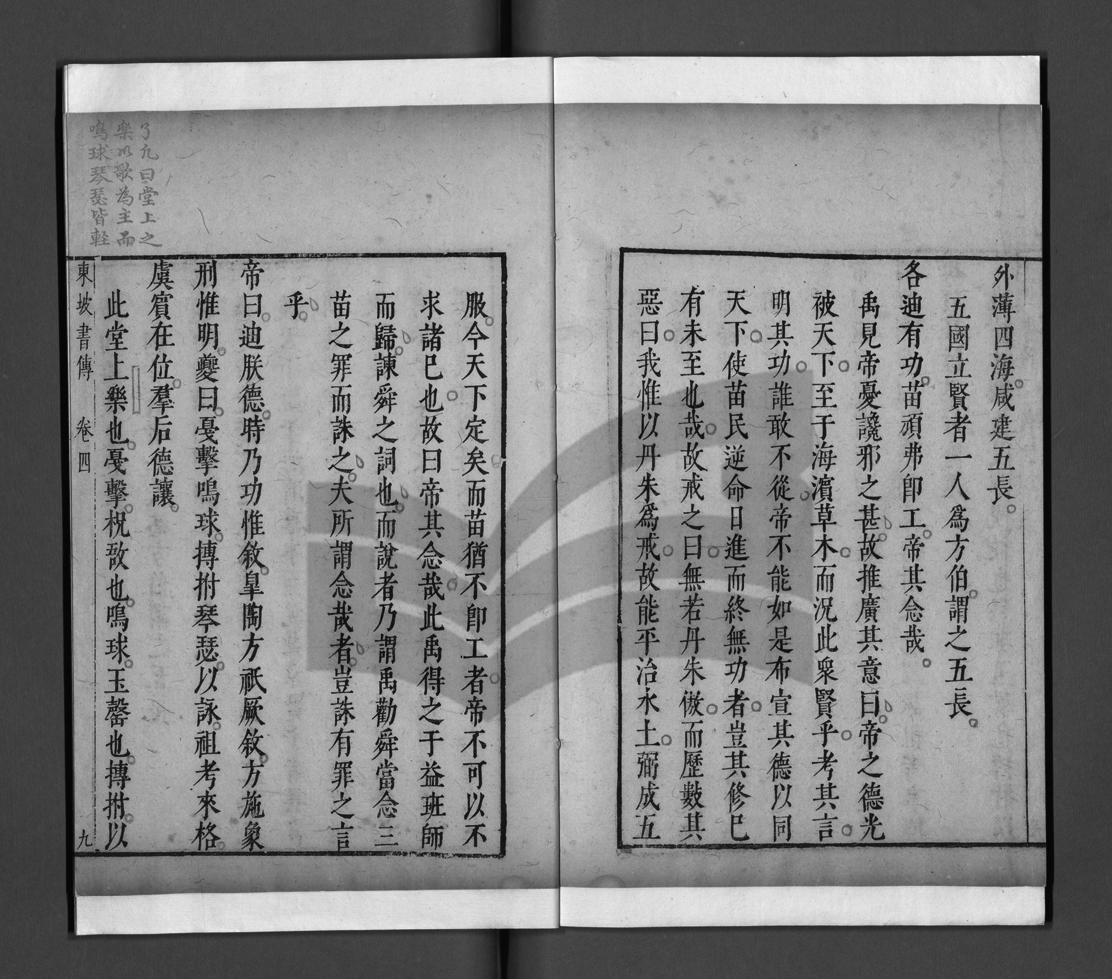 外薄四海咸建五長。
五國立賢者一人爲方伯。謂之五長。
各迪有功。苗頑弗卽工。帝其念哉。
禹見帝憂讒邪之甚。故推廣其意曰。帝之德光
被天下。至于海濱草木。而況此衆賢乎。考其言
明其功。誰敢不從。帝不能如是布宣其德以同
天下。使苗民逆命。日進而終無功者。豈其修己
有未至也哉。故戒之曰。無若丹朱傲。而歷數其
惡曰。我惟以丹朱爲戒。故能平治水土。弼成五
服。今天下定矣。而苗猶不卽工者。帝不可以不
求諸己也。故曰帝其念哉。此禹得之于益班師
而歸。諫舜之詞也。而說者乃謂禹勸舜當念三
苗之罪而誅之。夫所謂念哉者。豈誅有罪之言
乎。
帝曰。迪朕德。時乃功惟敘。臯陶方祇厥敘。方施象
刑惟明。夔曰。戛擊鳴球。搏拊琴瑟。以詠。祖考來格。
虞賓在位。羣后德讓。
此堂上樂也。戛擊。柷敔也。鳴球。玉罄也。搏拊。以
東坡書傳 卷四 九
了凡曰堂上之
樂以歌為主而
鳴球琴瑟皆輕